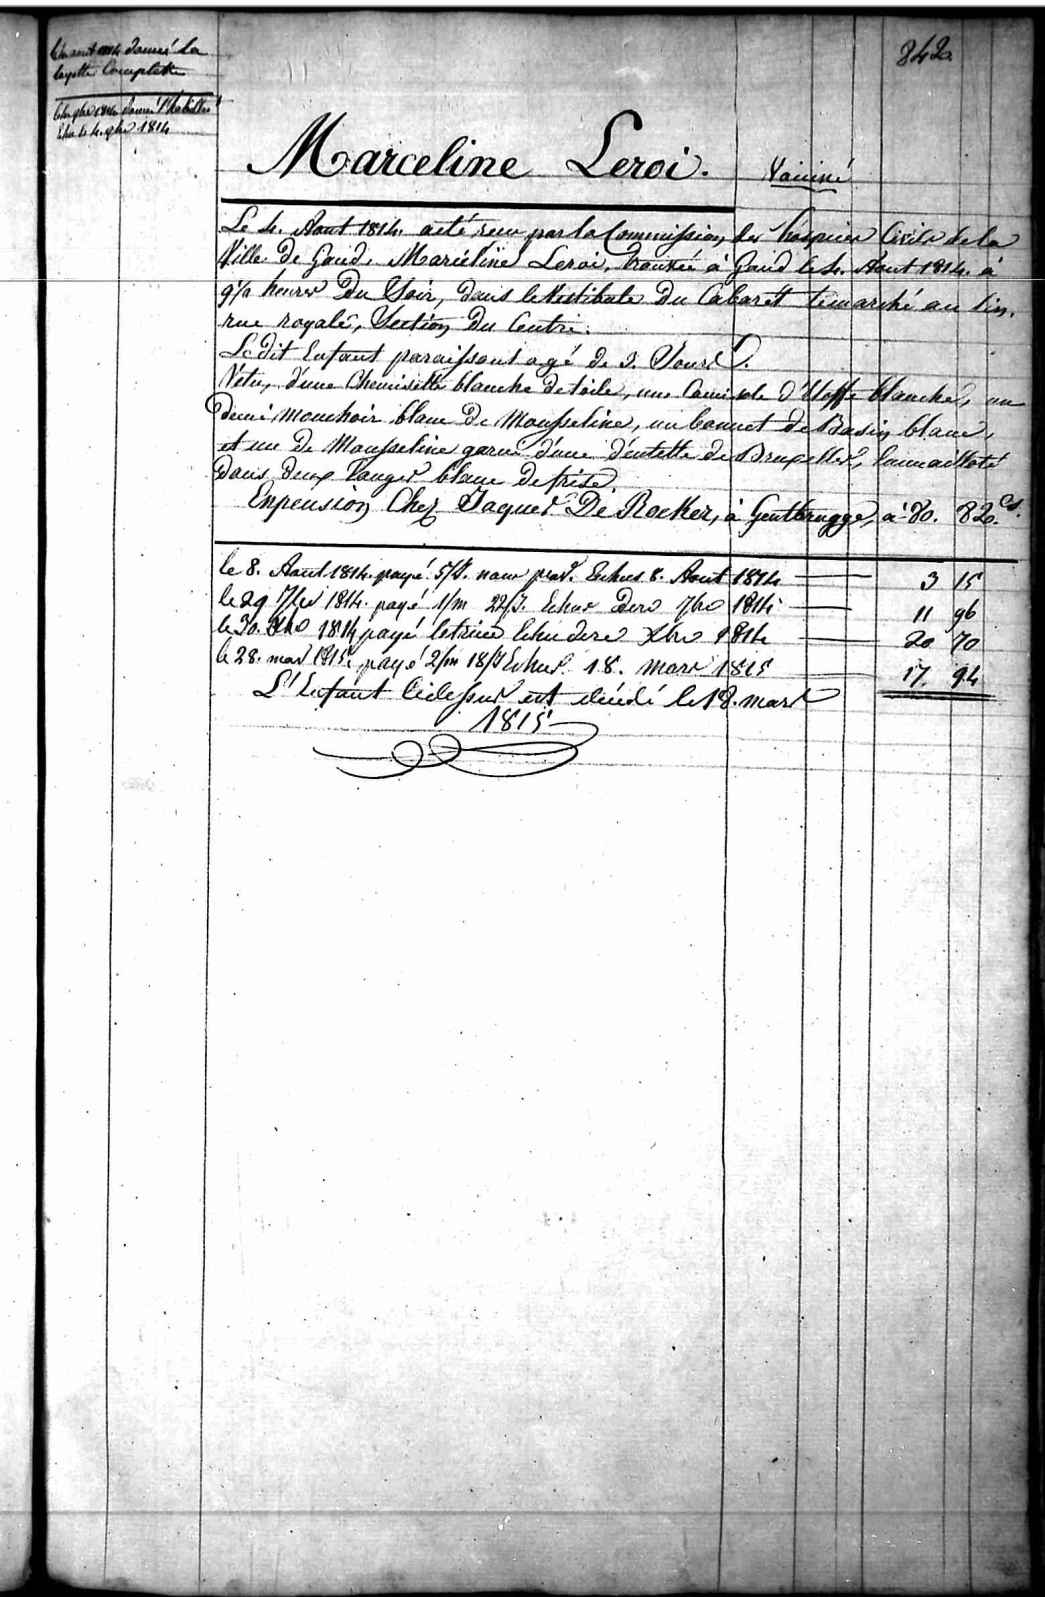 842
Le 4 aout 1814 donné La
layette Complette
Marceline Leroi. Vaciné
Le 4. Aout 1814. a été reçu par la Commission des hospices Civils de la
Ville de Gand, Marceline Leroi, trouvée à Gand le 4. Aout 1814. à
9½ heures Du Soir, dans le Vestibule Du Cabarêt le marché au lin,
rue royale, Section Du Centre.
Le dit Enfant paraissant agé de 3. Jours.
Vétu, d'une Chemisette blanche de toile, une Camisole d'Etoffe blanche, un
demi mouchoir blanc De Mousseline, un bonnet de Basin blanc,
et un de Mousseline garni d'une dentelle de Bruxelles, Emmailloté
Dans Deux langes blanc de frise
En pension Chez Jaques De Rocker, à Gentbrugge, à 80. 82. Cs.
le 8. Aout 1814. payé 5/J. nour prov. Echus 8. Aout 1814 3 15
le 29 7bre 1814. payé 1/m 22/J. Echus Dero 7bre 1814 11 96
le 30. Xbre 1814 payé le trims Echu dere Xbre 1814 20 70
le 28. mars 1815. payé 2/m 18/J Echus 18. mars 1815 17. 94
L'Enfant Cidessus est décédé le 18. mars
1815